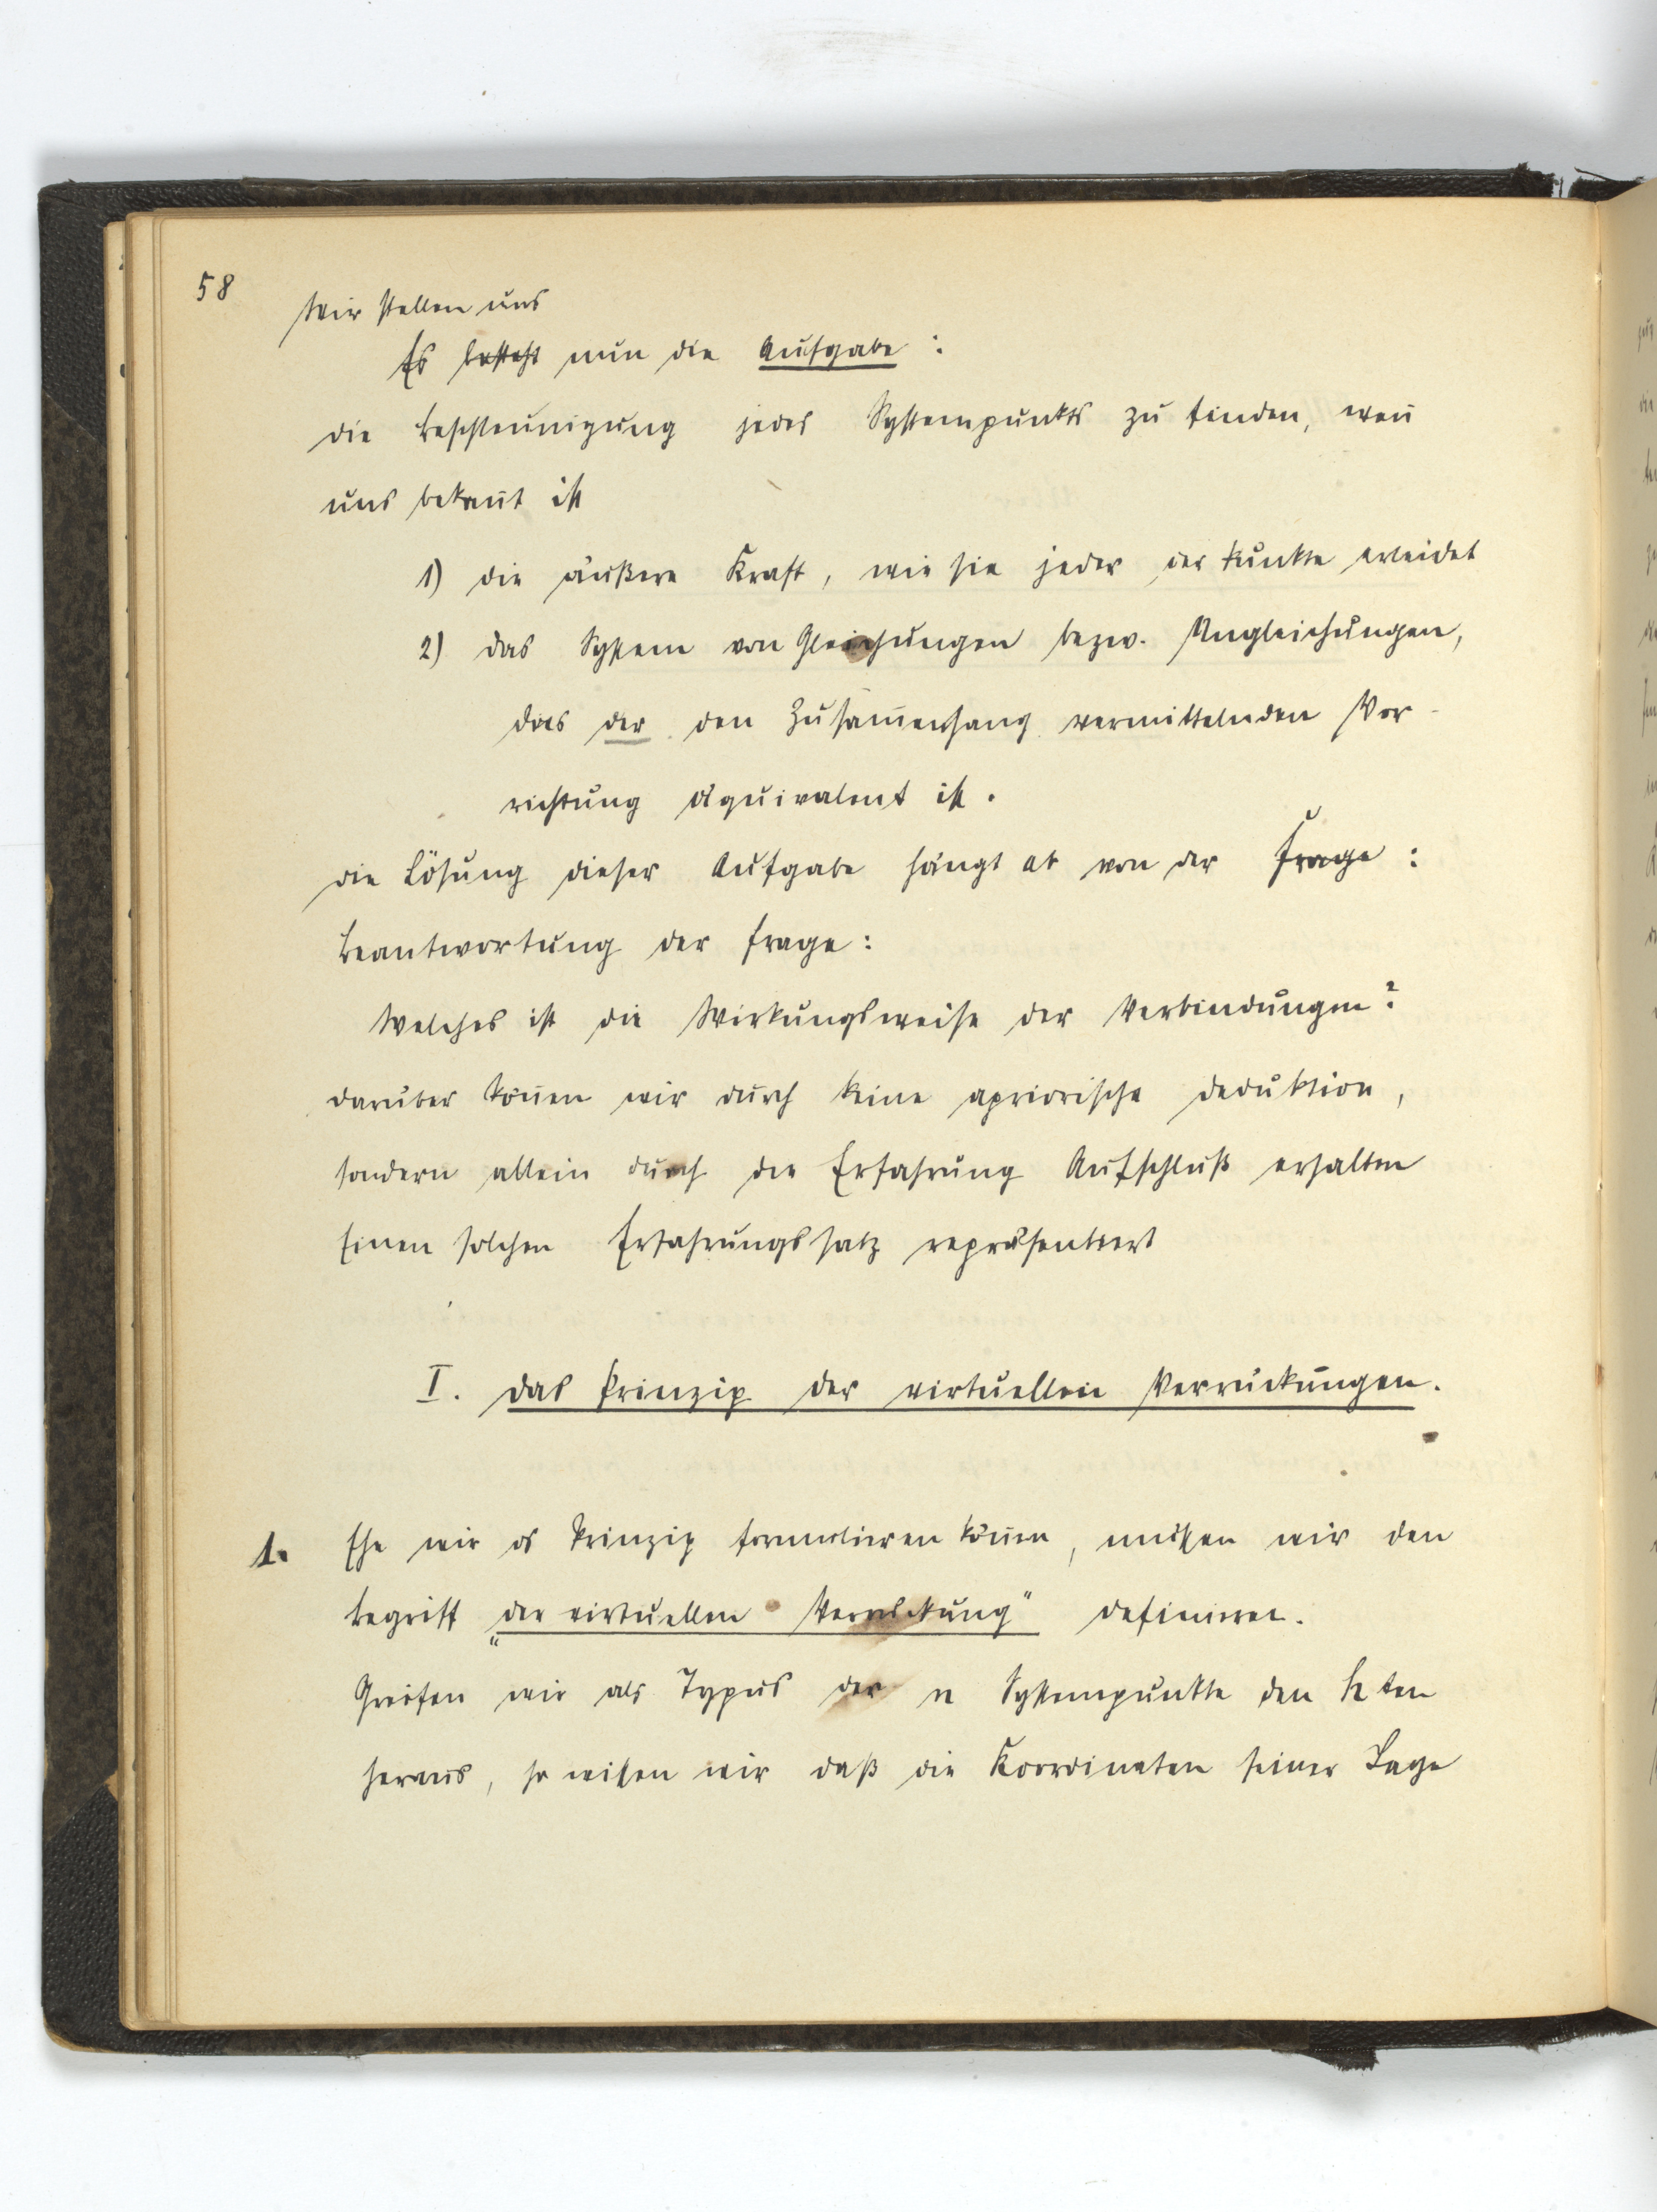 58
Wir stellen uns
Es besteht nun die Aufgabe:
die Beschleunigung jedes Systempunkts zu finden, wen̄
uns bekan̄t ist
1) die äußere Kraft, wie sie jeder der Punkte erleidet
2) das System von Gleichungen bezw. Ungleichungen,
das der den Zusam̄enhang vermittelnden Vor-
richtung äquivalent ist.
die Lösung dieser Aufgabe hängt ab von der Frage:
Beantwortung der Frage:
Welches ist die Wirkungsweise der Verbindungen?
darüber kön̄en wir durch keine apriorische Deduktion,
sondern allein durch die Erfahrung Aufschluß erhalten
Einen solchen Erfahrungssatz repräsentiert
I. Das Prinzip der virtuellen Verrückungen.
1. Ehe wir das Prinzip formulieren kön̄en, müßen wir den
Begriff „der virtuellen Verrückung" definieren.
Greifen wir als Typus der n Systempunkte den hten
heraus, so wißen wir daß die Koordinaten seiner Lage